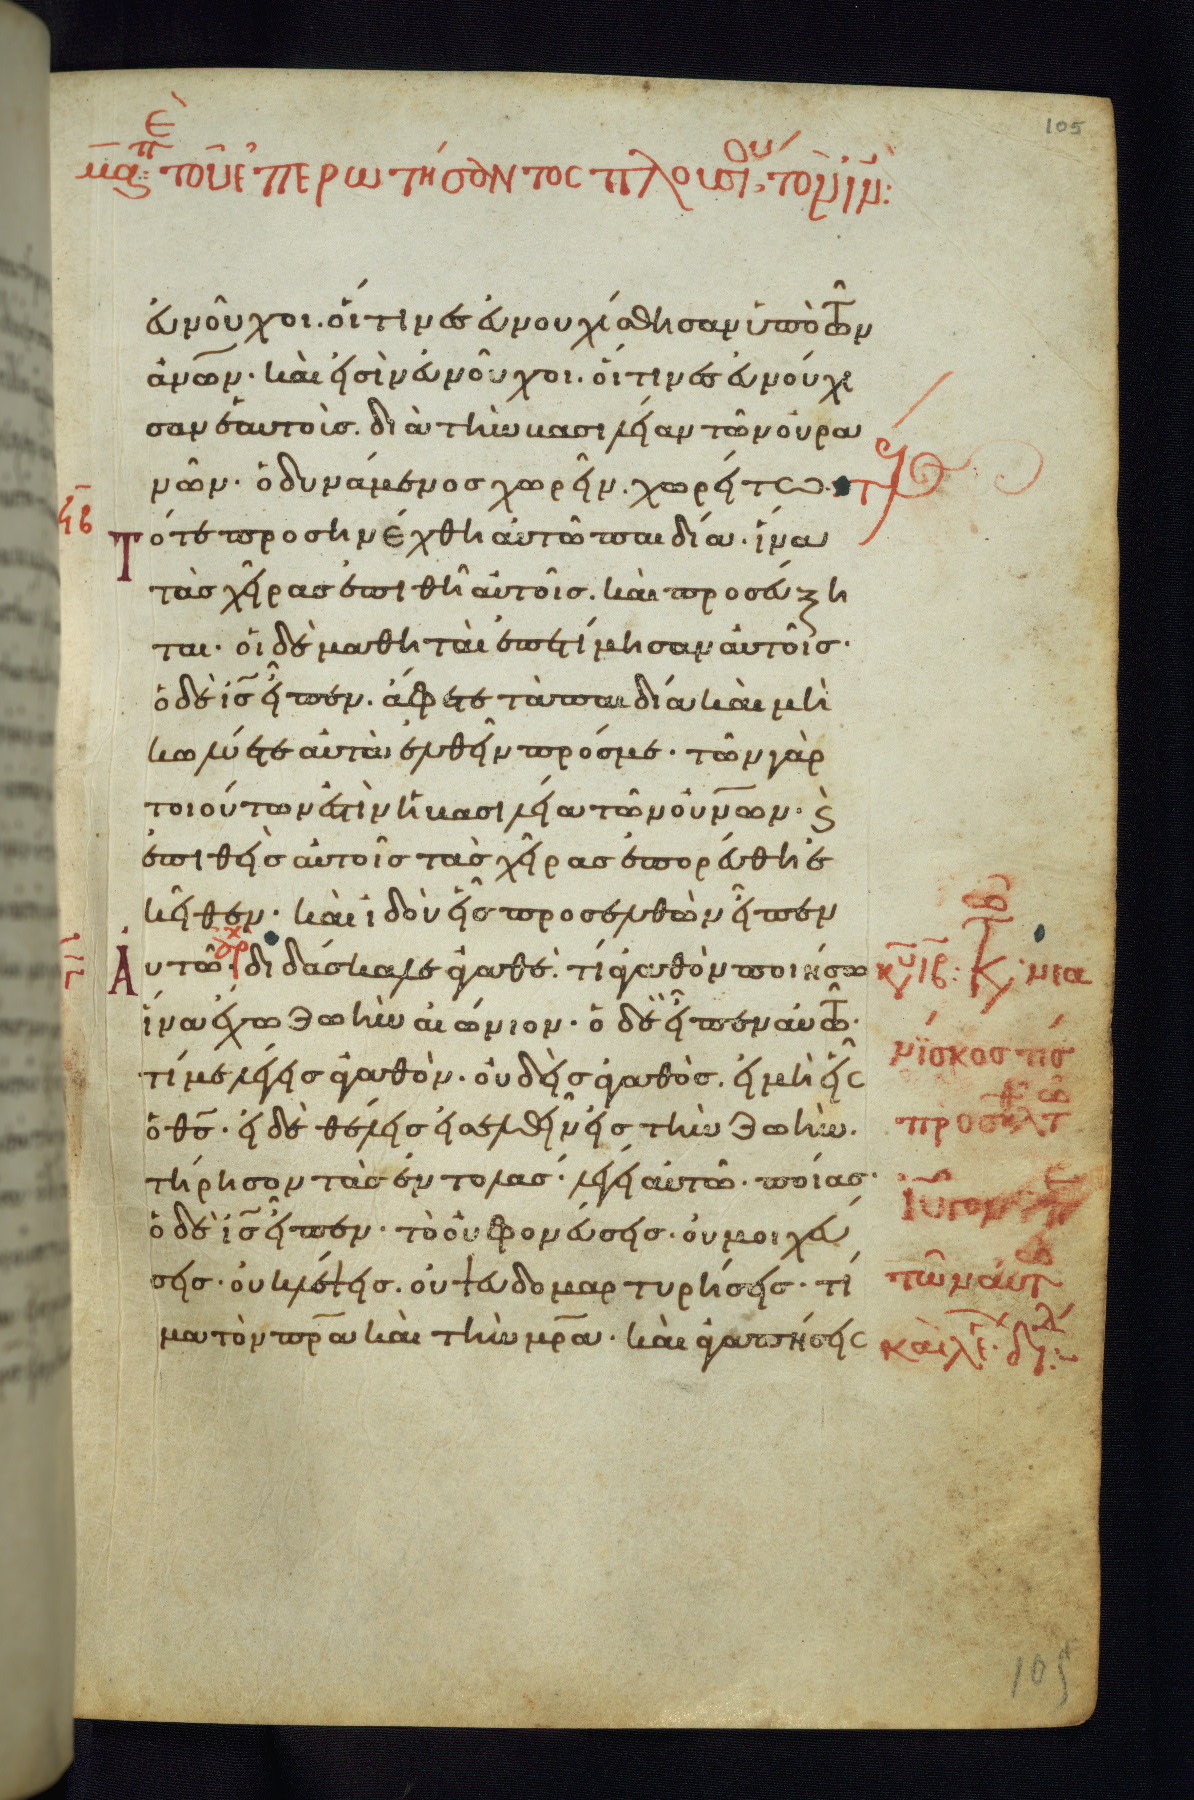 τοῦ ἐπερωτήσαντος πλουσίου τὸν ἰν:
εὐνοῦχοι. οἵτινες εὐνουχίσθησαν ὑπὸ τῶν
ἀνων· καὶ εἰσὶν εὐνοῦχοι. οἵτινες εὐνούχι
σαν ἑαυτοὺς. διὰ τὴν βασιλείαν τῶν οὐρα
νῶν· ὁ δυνάμενος χωρεῖν. χωρείτω.
Τότε προσηνέχθη αὐτῶ παιδία· ἵνα
τὰς χεῖρας ἐπιθῆ αὐτοῖς. καὶ προσεύξη
ται· οἱ δὲ μαθηταὶ ἐπετίμησαν αὐτοῖς·
ὁ δὲ ις εἶπεν. ἄφετε τὰ παιδία καὶ μὴ
κωλύετε αὐτὰ ἐλθεῖν πρός με· τῶν γὰρ
τοιούτων ἐστὶν ἡ βασιλεία τῶν οὐνων· ϗ
ἐπιθεὶς αὐτοῖς τὰς χεῖρας ἐπορεύθη ἐ
κεῖθεν· καὶ ἰδοὺ εἷς προσελθὼν εἶπεν
Αυτῶ· διδάσκαλε ἀγαθέ· τί ἀγαθὸν ποιήσω
ἵνα ἔχω ζωὴν αἰώνιον· ὁ δὲ εἶπεν αὐτῶ·
τί με λέγεις ἀγαθὸν· οὐδεὶς ἀγαθὸς. εἰ μὴ εἷς
ὁ θς· εἰ δὲ θέλεις εἰσελθεῖν εἰς τὴν ζωὴν.
τήρησον τὰς ἐντολας· λέγει αὐτῶ· ποίας·
ὁ δὲ ις εἶπεν· τὸ οὐ φονεύσεις· οὐ μοιχεύ
σεις· οὐ κλέψεις. οὐ ψευδομαρτυρήσεις· τί
μα τὸν πρα καὶ τὴν μρα· καὶ ἀγαπήσεις
κυ ιβ:
νεα
νίσκος τις
τῶ ιυ
105
105